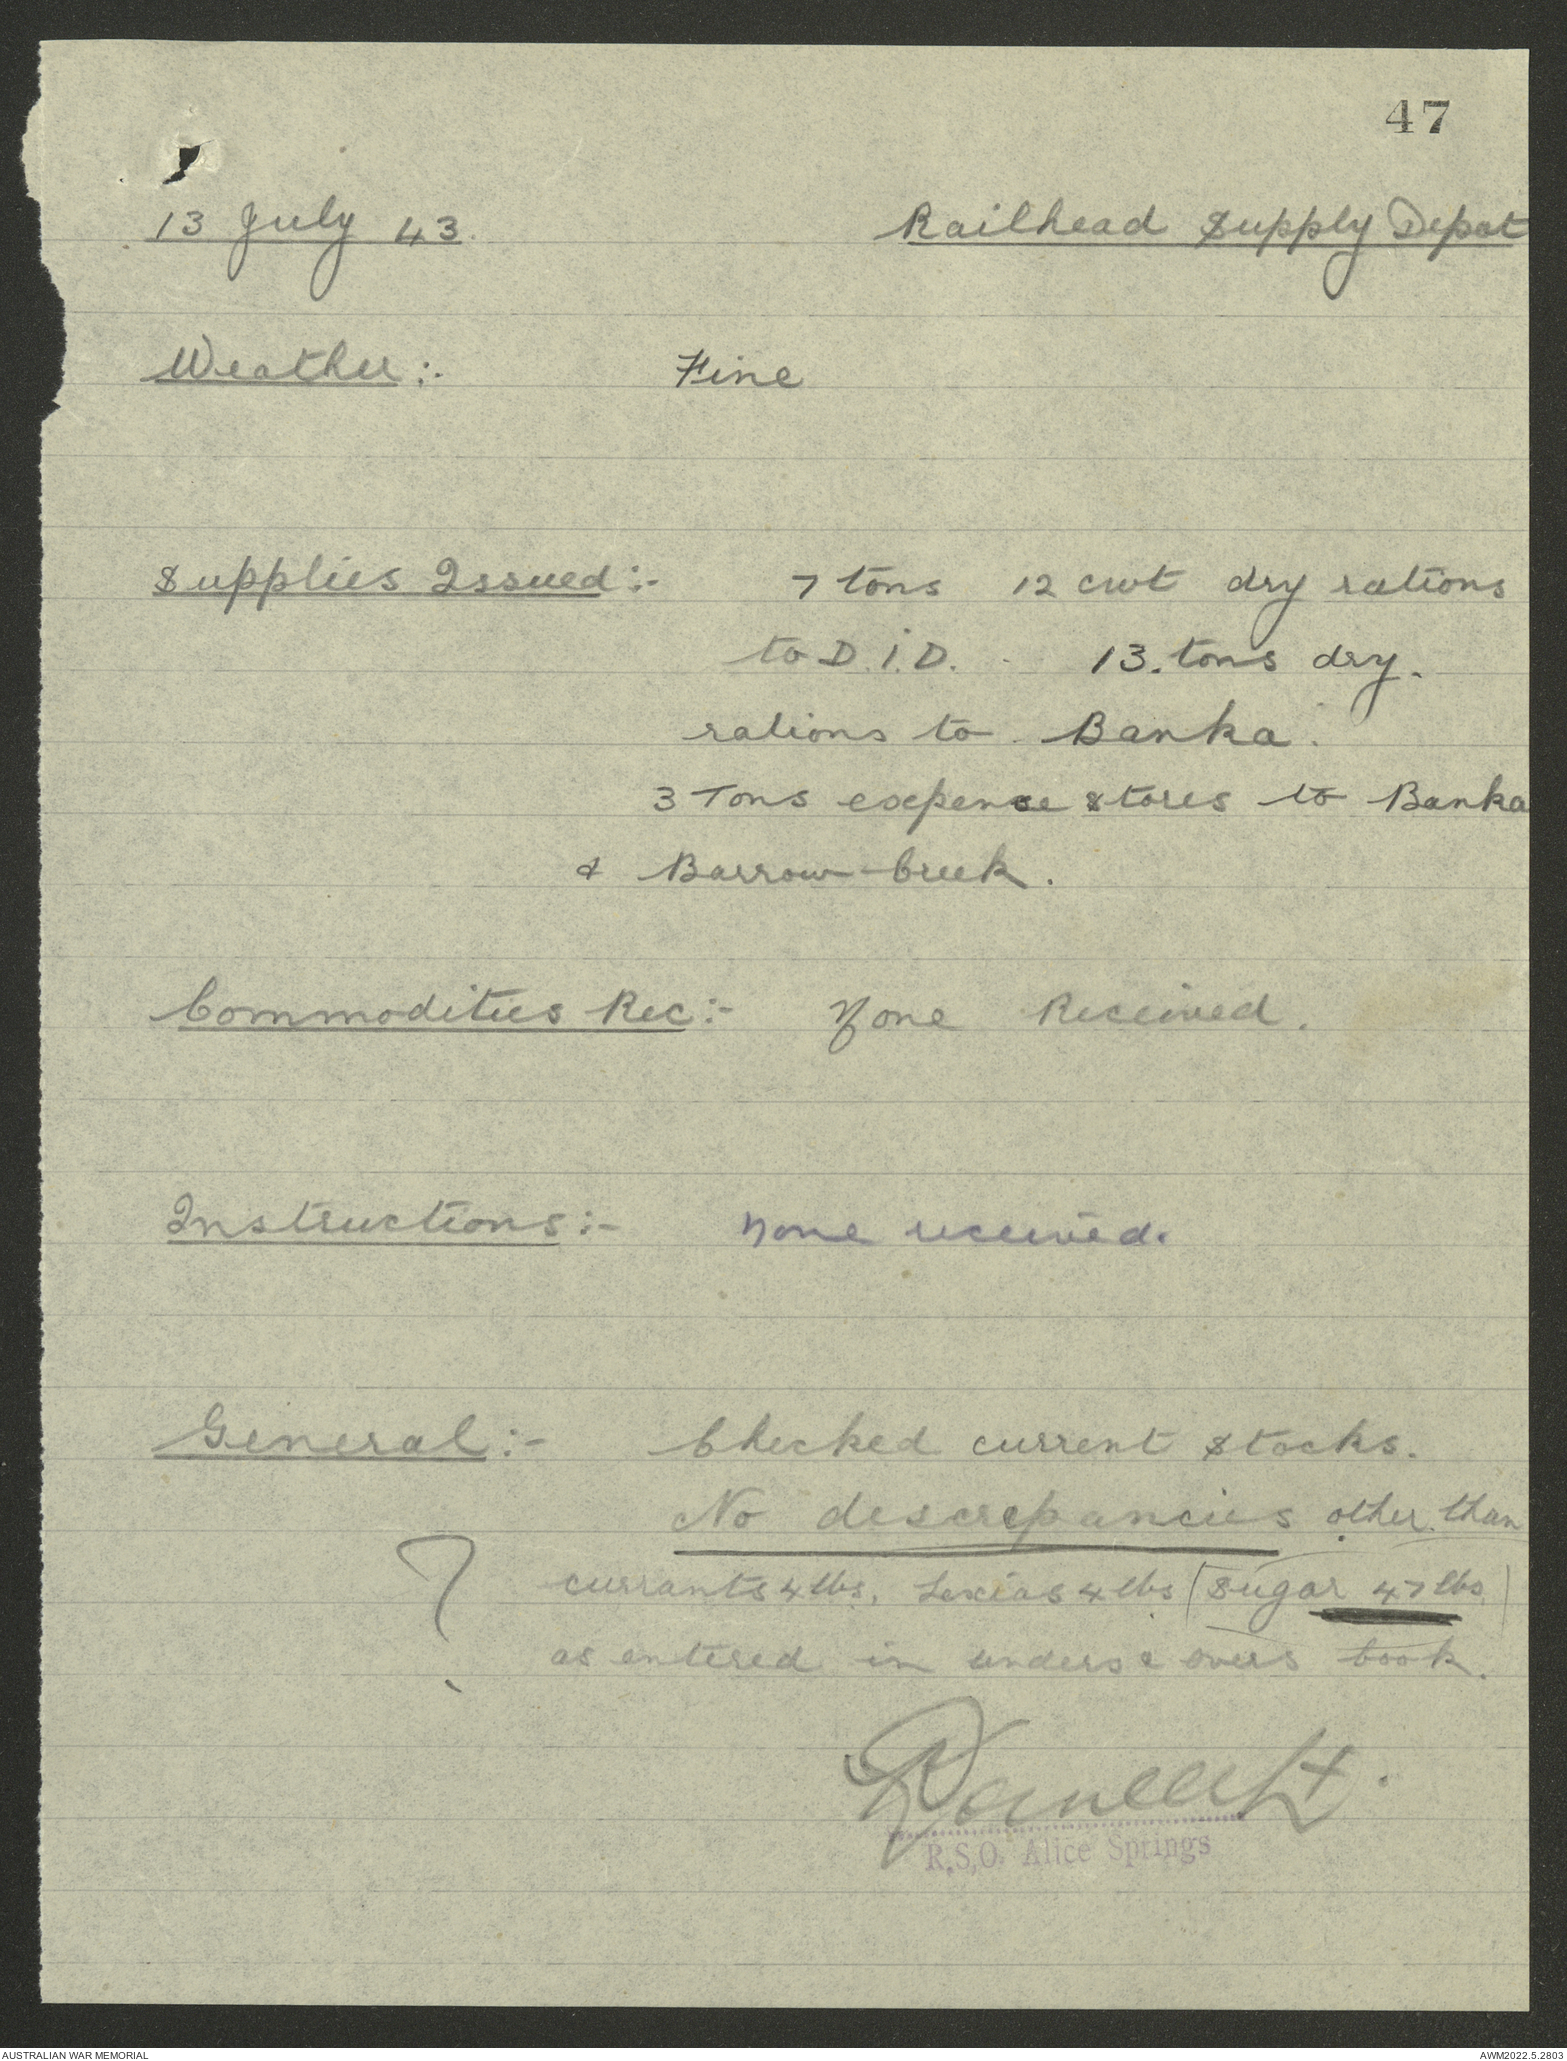 47
13 July 43. Railhead Supply Depot
Weather:- Fine
Supplies Issued:- 7 tons 12 cwt dry rations
to D.I.D. 13. tons dry.
rations to Banka.
3 Tons expense stores to Banka
& Barrow-Creek.
Commodities Rec:- None Received.
Instructions:- None received.
General:- Checked current stocks.
No descrepancies other than
? currants 4 lbs, Lexias 4 lbs (sugar 47 lbs)
as entered in unders & overs book.
R.S.O. Alice Springs
AUSTRALIAN WAR MEMORIAL AWM2022.5.2803